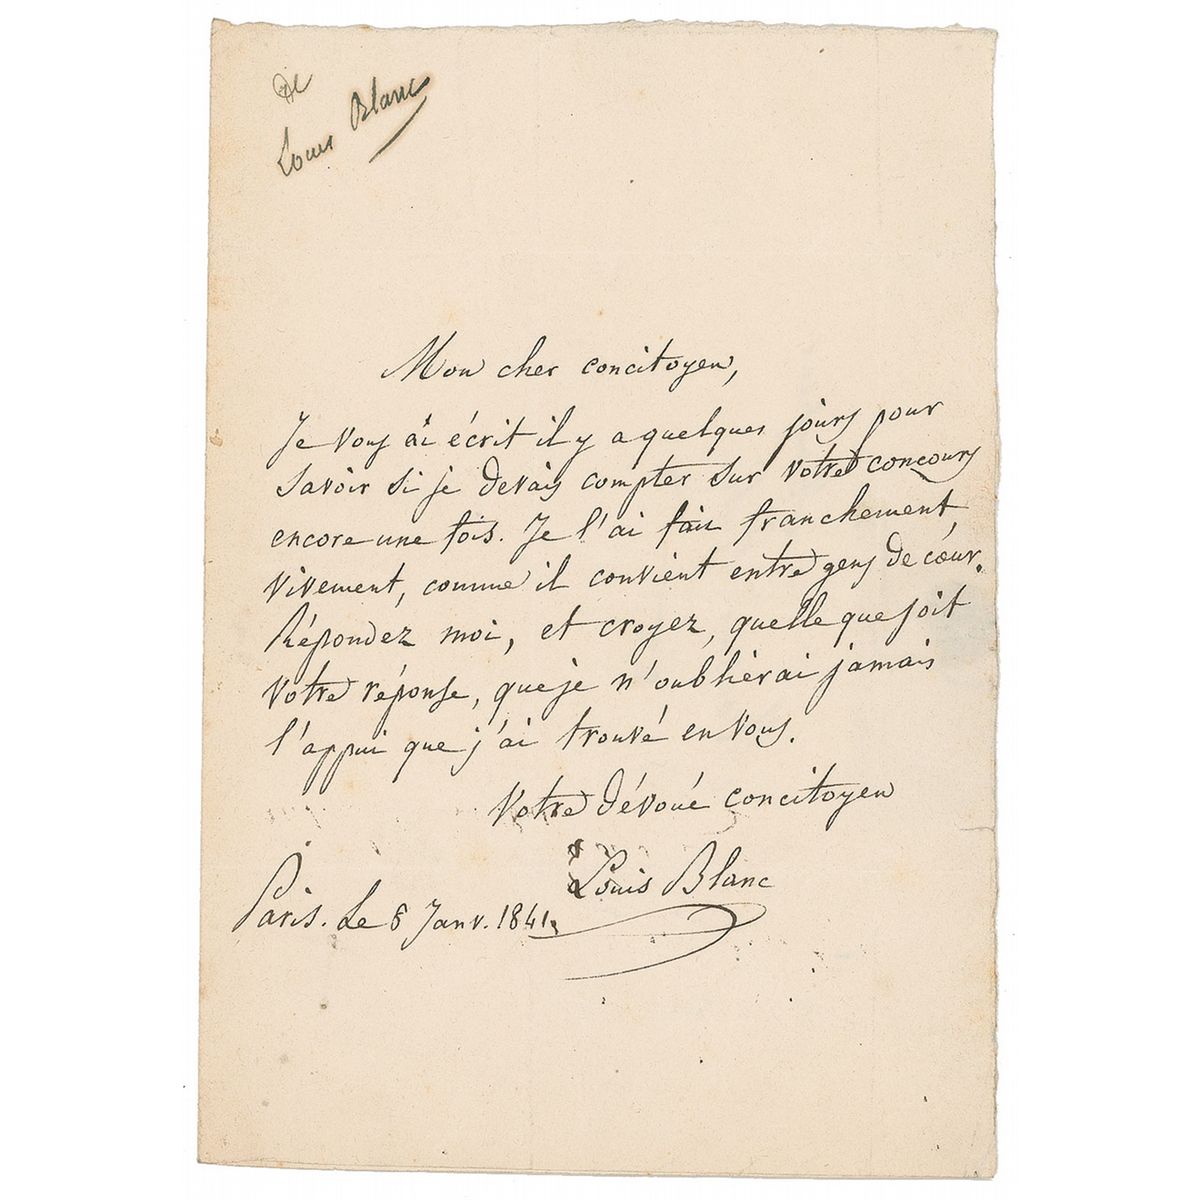 De
Louis Blanc
Mon cher concitoyen,
Je vous ai écrit il y a quelques jours pour
savoir si je devais compter sur votre concours
encore une fois. Je l'ai fait franchement,
vivement, comme il convient entre gens de cœur.
Répondez moi, et croyez, quelle que soit
votre réponse, que je n'oublierai jamais
l'appui que j'ai trouvé en vous.
Votre dévoué concitoyen
Louis Blanc
Paris. Le 8 Janv. 1841.